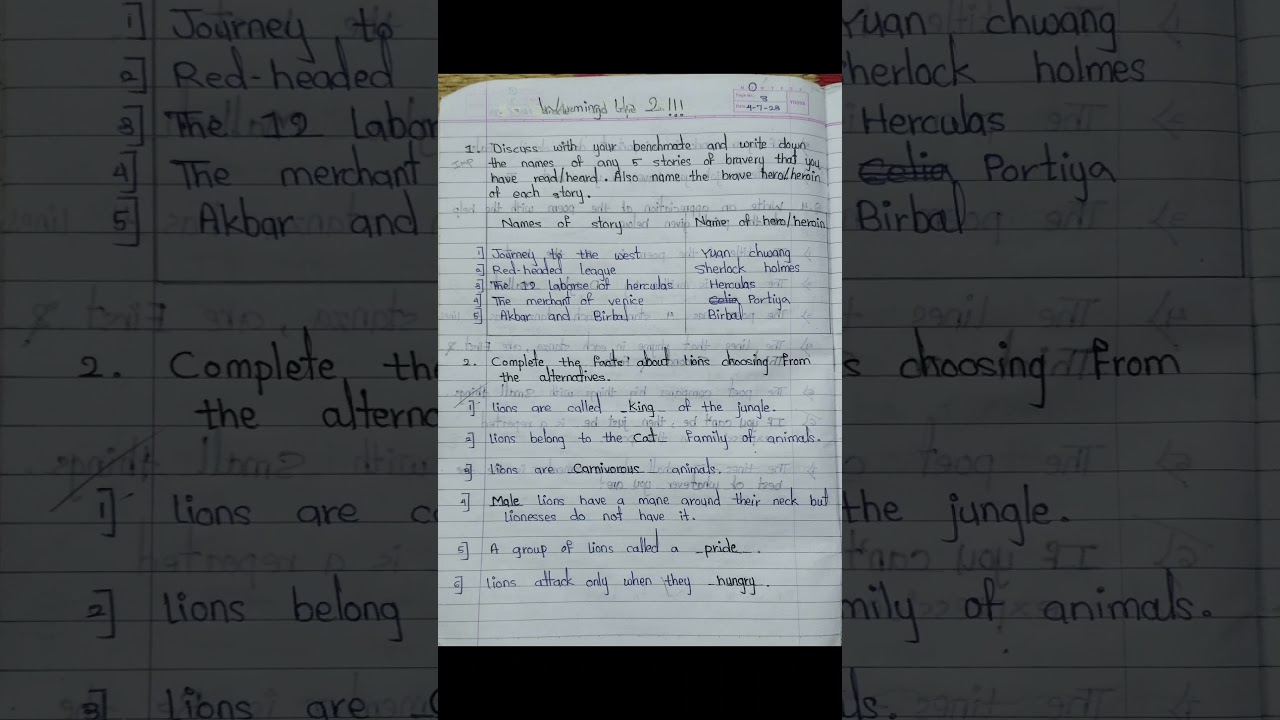 Page No. 8
Date 4-7-23
1. Discuss with your benchmate and write down
the names of any 5 stories of bravery that you
have read/heard. Also name the brave hero/heroin
of each story.
Names of story Name of hero/heroin
1] Journey to the west Yuan chwang
2] Red-headed league Sherlock holmes
3] The 12 laborse of herculas Herculas
4] The merchant of venice Celia Portiya
5] Akbar and Birbal Birbal
2. Complete the facts about lions choosing from
the alternatives.
1] lions are called king of the jungle.
2] lions belong to the cat family of animals.
3] lions are Carnivorous animals.
4] Male lions have a mane around their neck but
lionesses do not have it.
5] A group of lions called a pride.
6] lions attack only when they hungry.